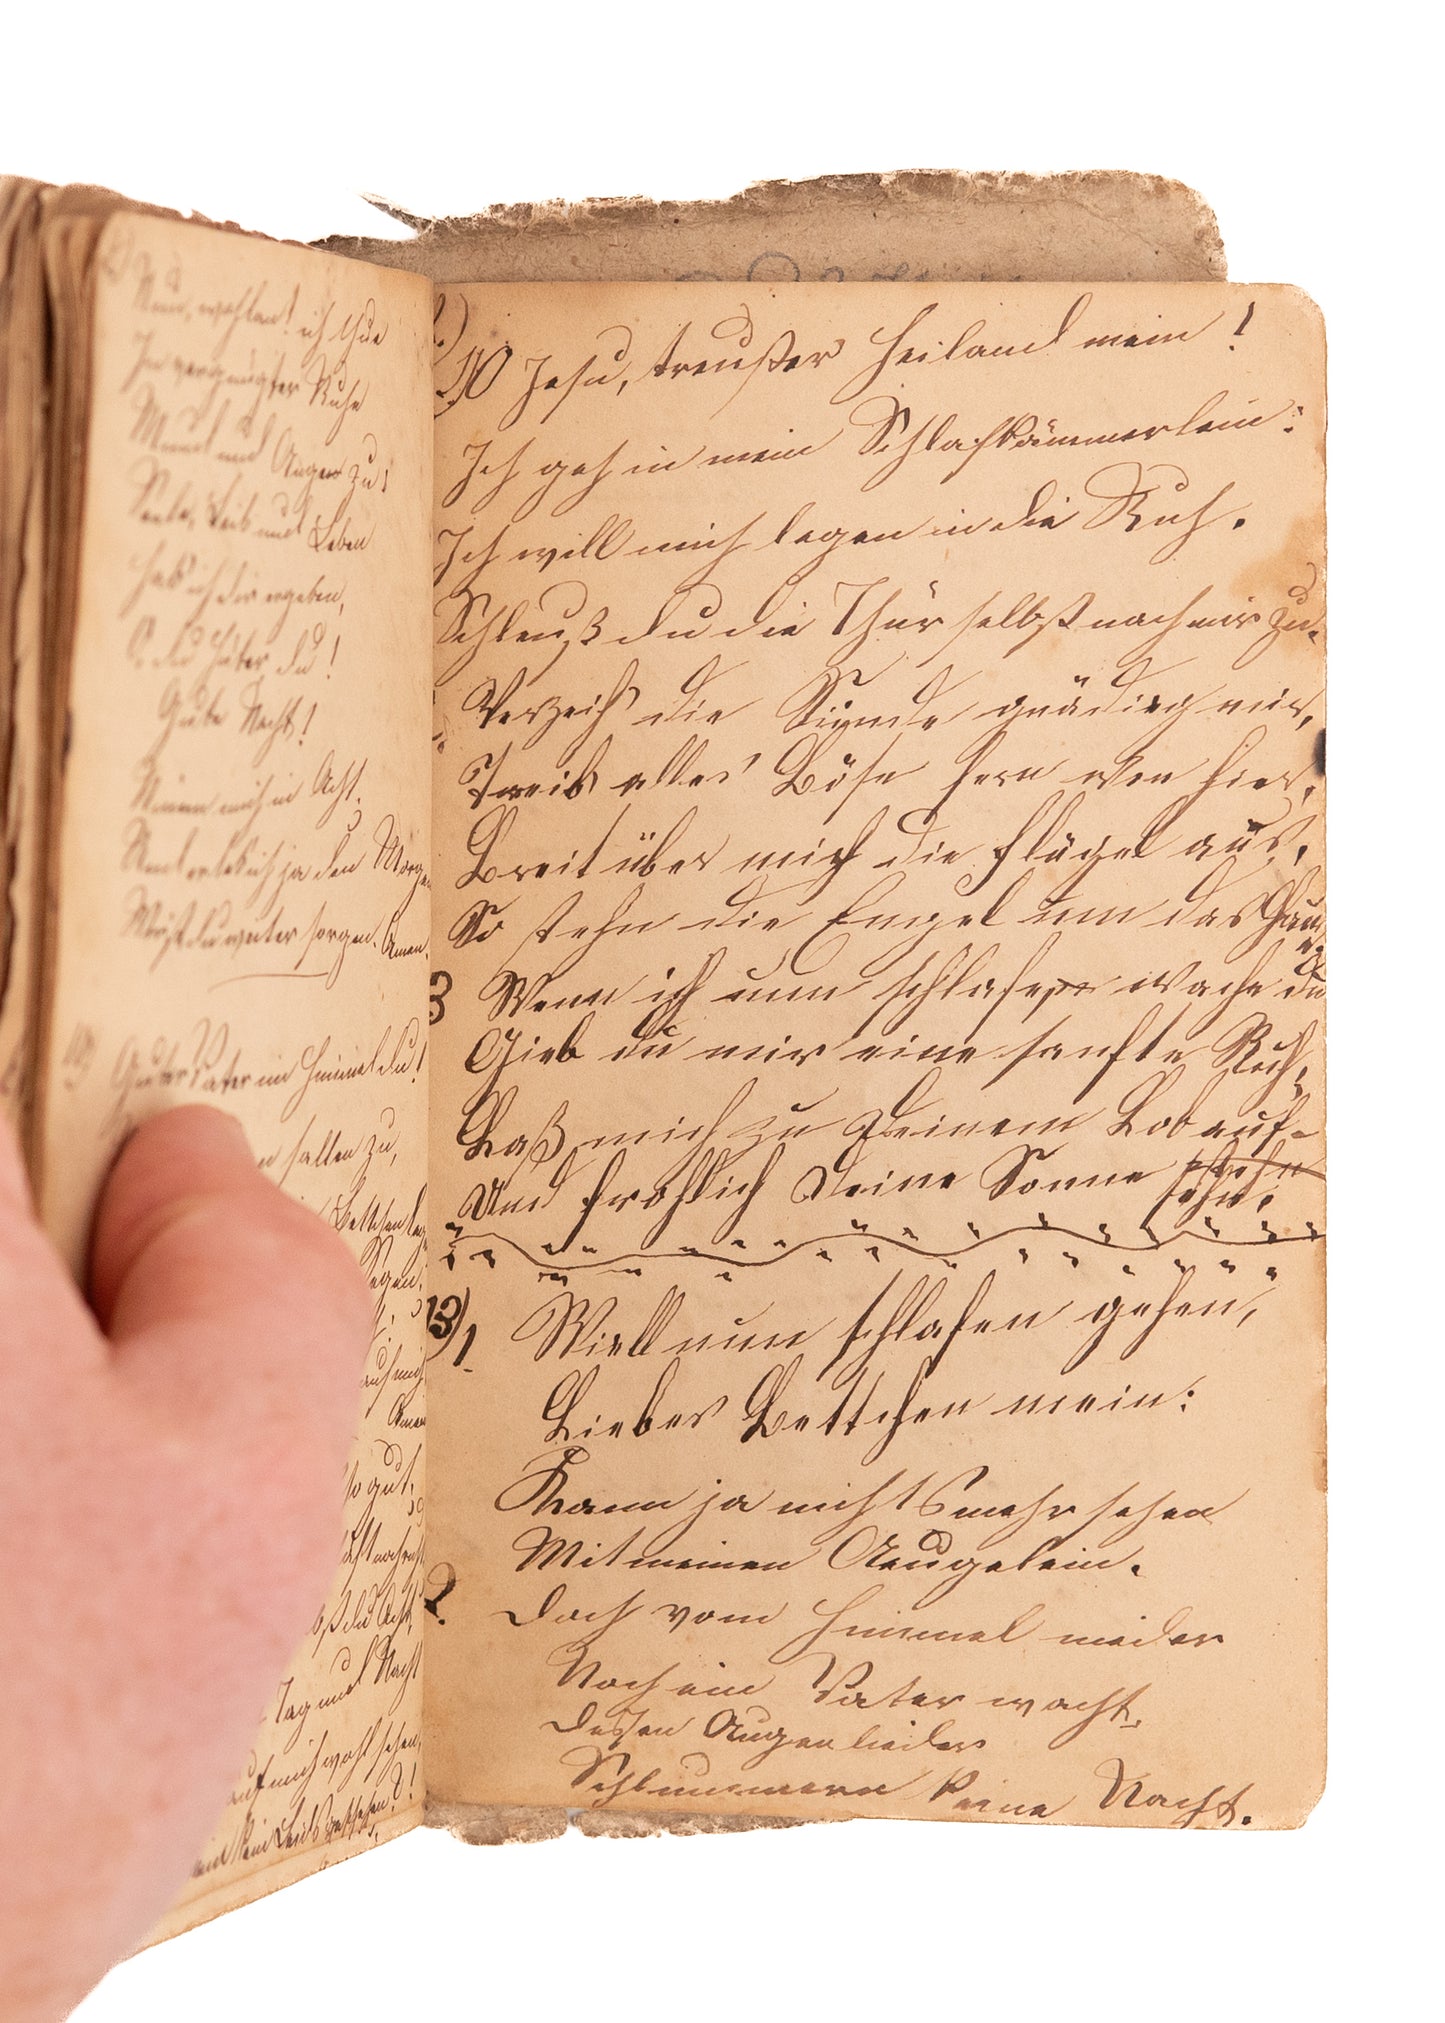 Nun, wohlan! ich thue
In vergnügter Ruhe
Mund und Augen zu;
Seele, Leib und Leben
Hab' ich dir ergeben,
O du Hüter du!
Gute Nacht!
Nimm mich in Acht.
Und erleb ich ja den Morgen
Wirst du weiter sorgen. Amen.
Guter Vater im Himmel du!
fallen zu,
Bettchen
Segen,
auf mich
Amen
so gut,
Acht
Tag und Nacht
auf mich wohl sehen,
kein Leids geschehen!
O Jesu, treuster Heiland mein!
Ich geh in mein Schlafkämmerlein:
Ich will mich legen in die Ruh.
Schleuß du die Thür selbst nach mir zu.
Verzeih' die Sünde gnädig mir,
Treib alles Böse fern von hier,
Breit über mich die Flügel aus,
So stehn die Engel um das Haus
3 Wenn ich nun schlafe, wache du
Gieb du mir eine sanfte Ruh,
Laß mich zu Deinem Lob auf-
stehn
Und fröhlich Deine Sonne
sehn.
13) 1. Will nun schlafen gehen,
Liebes Bettchen mein:
Kann ja nichts mehr sehen
Mit meinen Aeugelein.
2. Doch vom Himmel nieder
Noch ein Vater wacht,
Dessen Augenlieder
Schlummern keine Nacht.